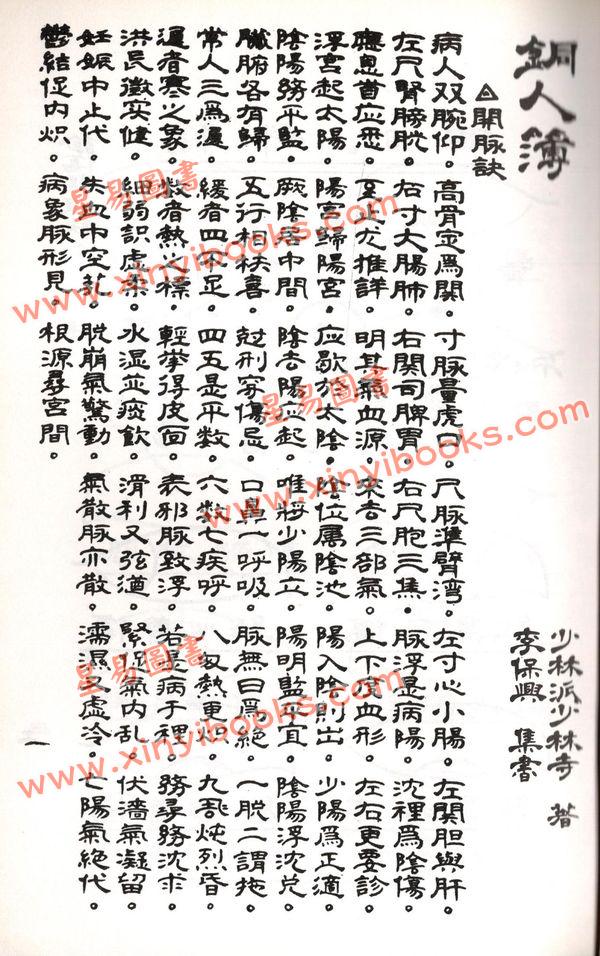 銅人簿
少林派少林寺 著
李保興 集書
△開脉訣
病人双腕仰。高骨定爲関。寸脉量虎口。尺脉準臂湾。左寸心小腸。左関胆與肝。
左尺腎膀胱。右寸大腸肺。右関司脾胃。右尺胞三焦。脉浮是病陽。沈裡爲陰傷。
聴息首应悉。至止尤推詳。明其氣血源。來去三部氣。上下度血形。左右更要診。
浮宮起太陽。陽宮歸陽宮。应歇於太陰。陰位属陰池。陽入陰則出。少陽爲正適。
陰陽務平監。厥陰居中間。陰去陽应起。唯將少陽立。陽明監平宜。陰陽浮沈兑。
臓腑各有歸。五行相扶喜。尅刑穷傷忌。口鼻一呼吸。脉無曰爲絶。一脱二謂拖。
常人三爲遲。緩者四不足。四五是平数。六数七疾呼。八极熱更。九乱炖烈昏。
遲者寒之象。数者熱之標。輕拳得皮面。表邪脉致浮。若是病于裡。務尋務沈求。
洪長徵实健。細弱訳虚柔。水湿並痰飲。滑利又弦遒。緊促氣内乱。伏濇氣凝留。
妊娠中止代。失血中空芤。脱崩氣驚動。氣散脉亦散。濡濕又虚冷。亡陽氣絶代。
鬱結促内炽。病象脉形見。根源尋宮間。
一
星易圖書
www.xinyibooks.com
星易圖書
www.xinyibooks.com
星易圖書
www.xinyibooks.com